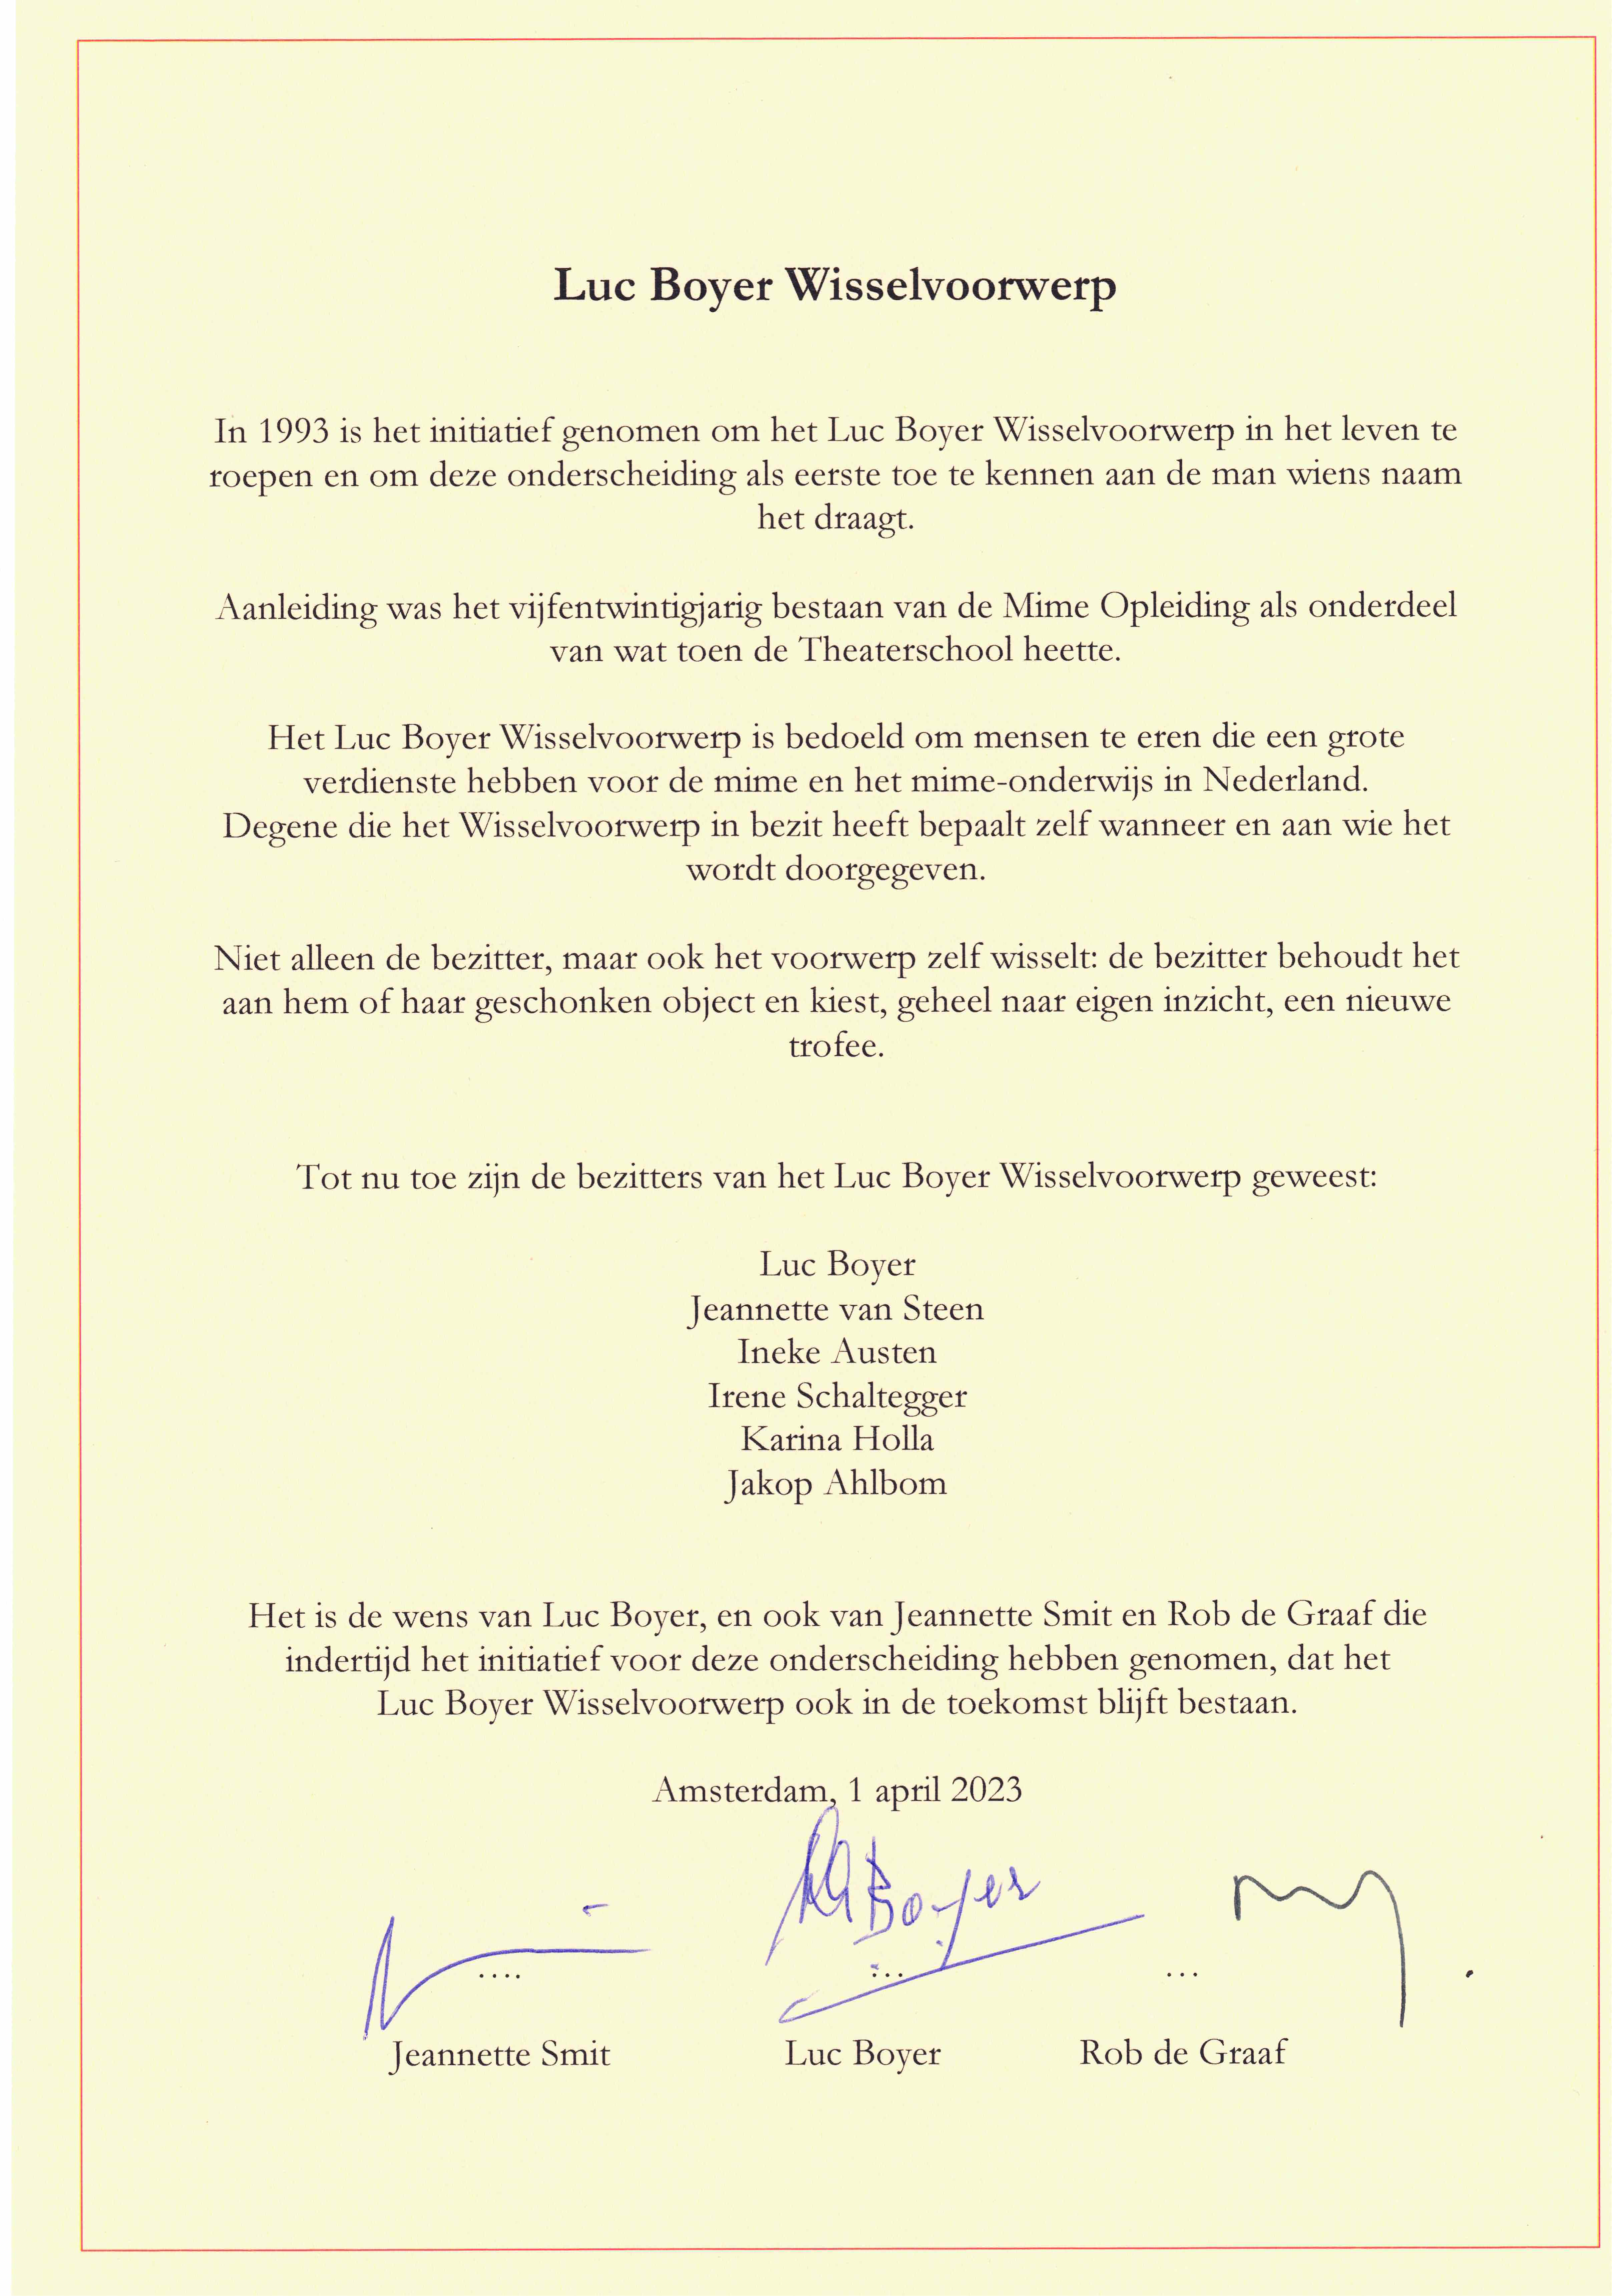 Luc Boyer Wisselvoorwerp
In 1993 is het initiatief genomen om het Luc Boyer Wisselvoorwerp in het leven te
roepen en om deze onderscheiding als eerste toe te kennen aan de man wiens naam
het draagt.
Aanleiding was het vijfentwintigjarig bestaan van de Mime Opleiding als onderdeel
van wat toen de Theaterschool heette.
Het Luc Boyer Wisselvoorwerp is bedoeld om mensen te eren die een grote
verdienste hebben voor de mime en het mime-onderwijs in Nederland.
Degene die het Wisselvoorwerp in bezit heeft bepaalt zelf wanneer en aan wie het
wordt doorgegeven.
Niet alleen de bezitter, maar ook het voorwerp zelf wisselt: de bezitter behoudt het
aan hem of haar geschonken object en kiest, geheel naar eigen inzicht, een nieuwe
trofee.
Tot nu toe zijn de bezitters van het Luc Boyer Wisselvoorwerp geweest:
Luc Boyer
Jeannette van Steen
Ineke Austen
Irene Schaltegger
Karina Holla
Jakop Ahlbom
Het is de wens van Luc Boyer, en ook van Jeannette Smit en Rob de Graaf die
indertijd het initiatief voor deze onderscheiding hebben genomen, dat het
Luc Boyer Wisselvoorwerp ook in de toekomst blijft bestaan.
Amsterdam, 1 april 2023
Boyer
.... ... ...
Jeannette Smit Luc Boyer Rob de Graaf